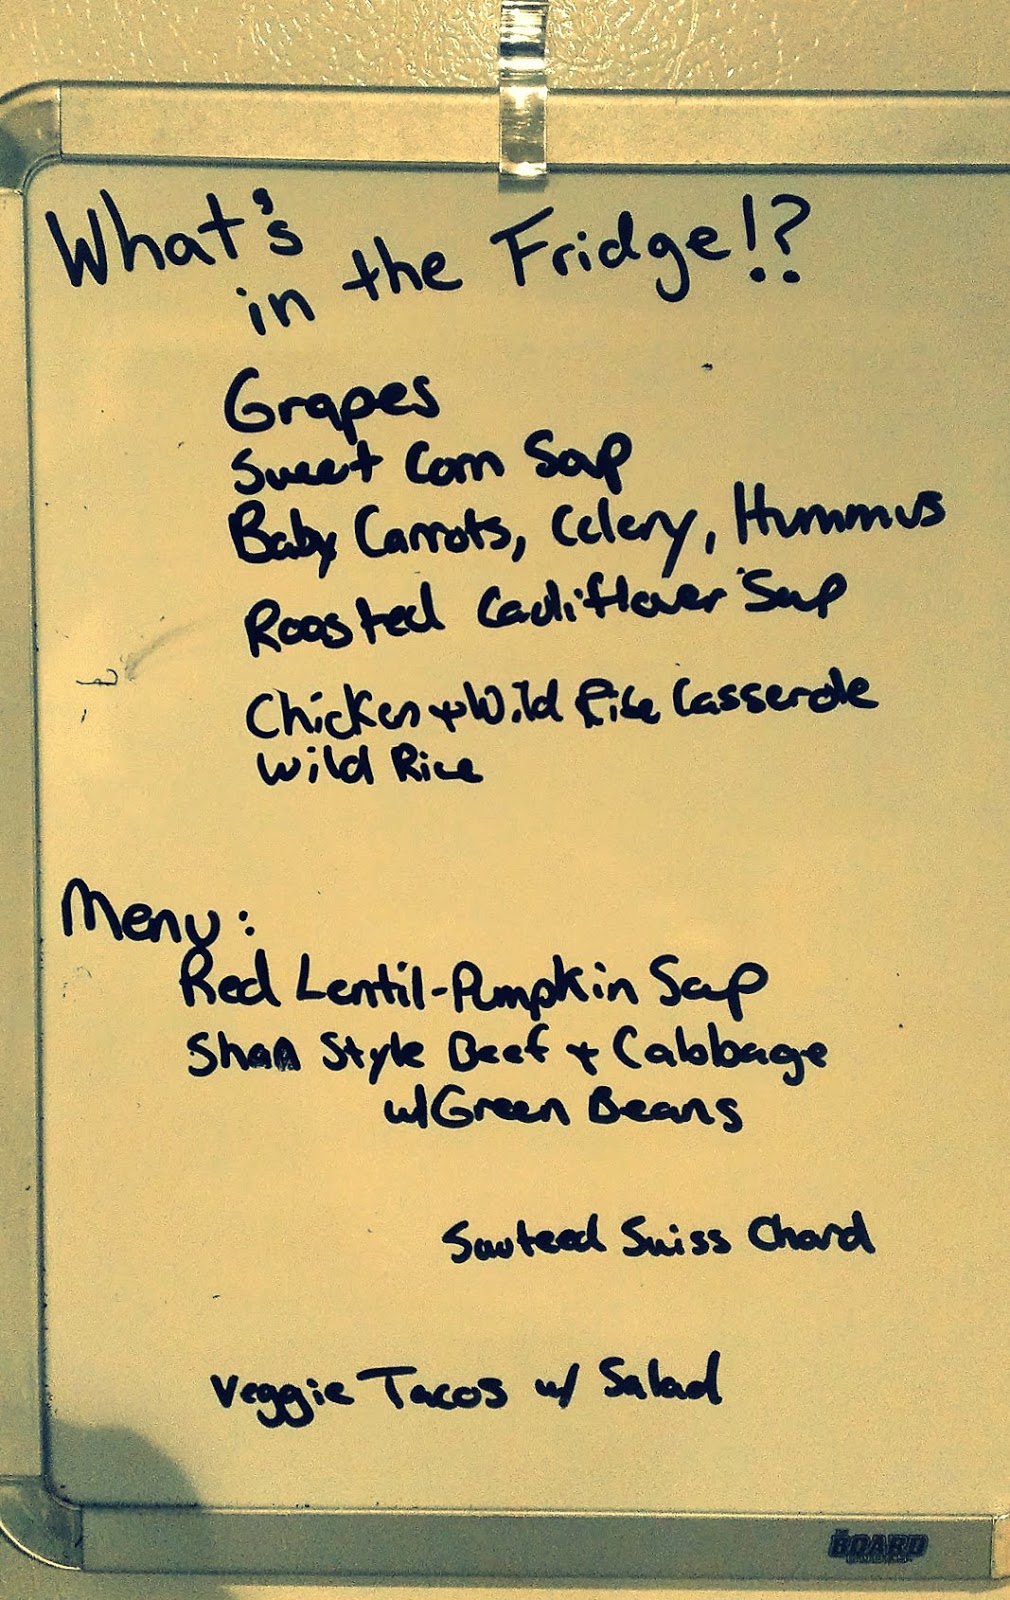 What's
in the Fridge!?
Grapes
Sweet Corn Soup
Baby Carrots, Celery, Hummus
Roasted Cauliflower Soup
Chicken + Wild Rice Casserole
Wild Rice
Menu:
Red Lentil-Pumpkin Soup
Shan Style Beef + Cabbage
w/ Green Beans
Sauteed Swiss Chard
Veggie Tacos w/ Salad
THE BOARD